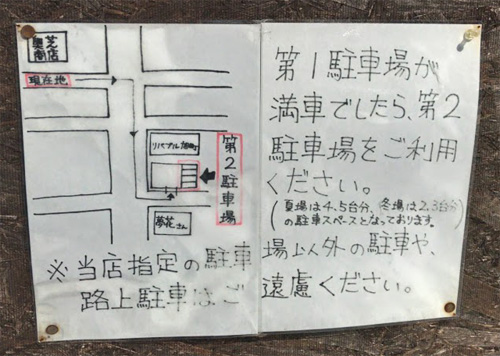 奥芝
商店
現在地
リバブル旭町
第2駐車場
夢花さん
第1駐車場が
満車でしたら、第2
駐車場をご利用
ください。
(夏場は4.5台分、冬場は2.3台分
の駐車スペースとなっております。)
※当店指定の駐車
場以外の駐車や、
路上駐車はご
遠慮ください。